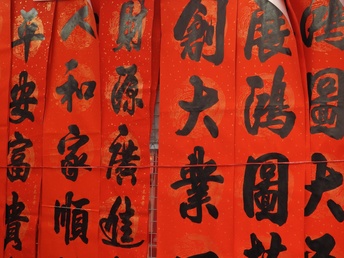 鴻圖大
展鴻圖
創大業
財源廣進
人和家順
平安富貴